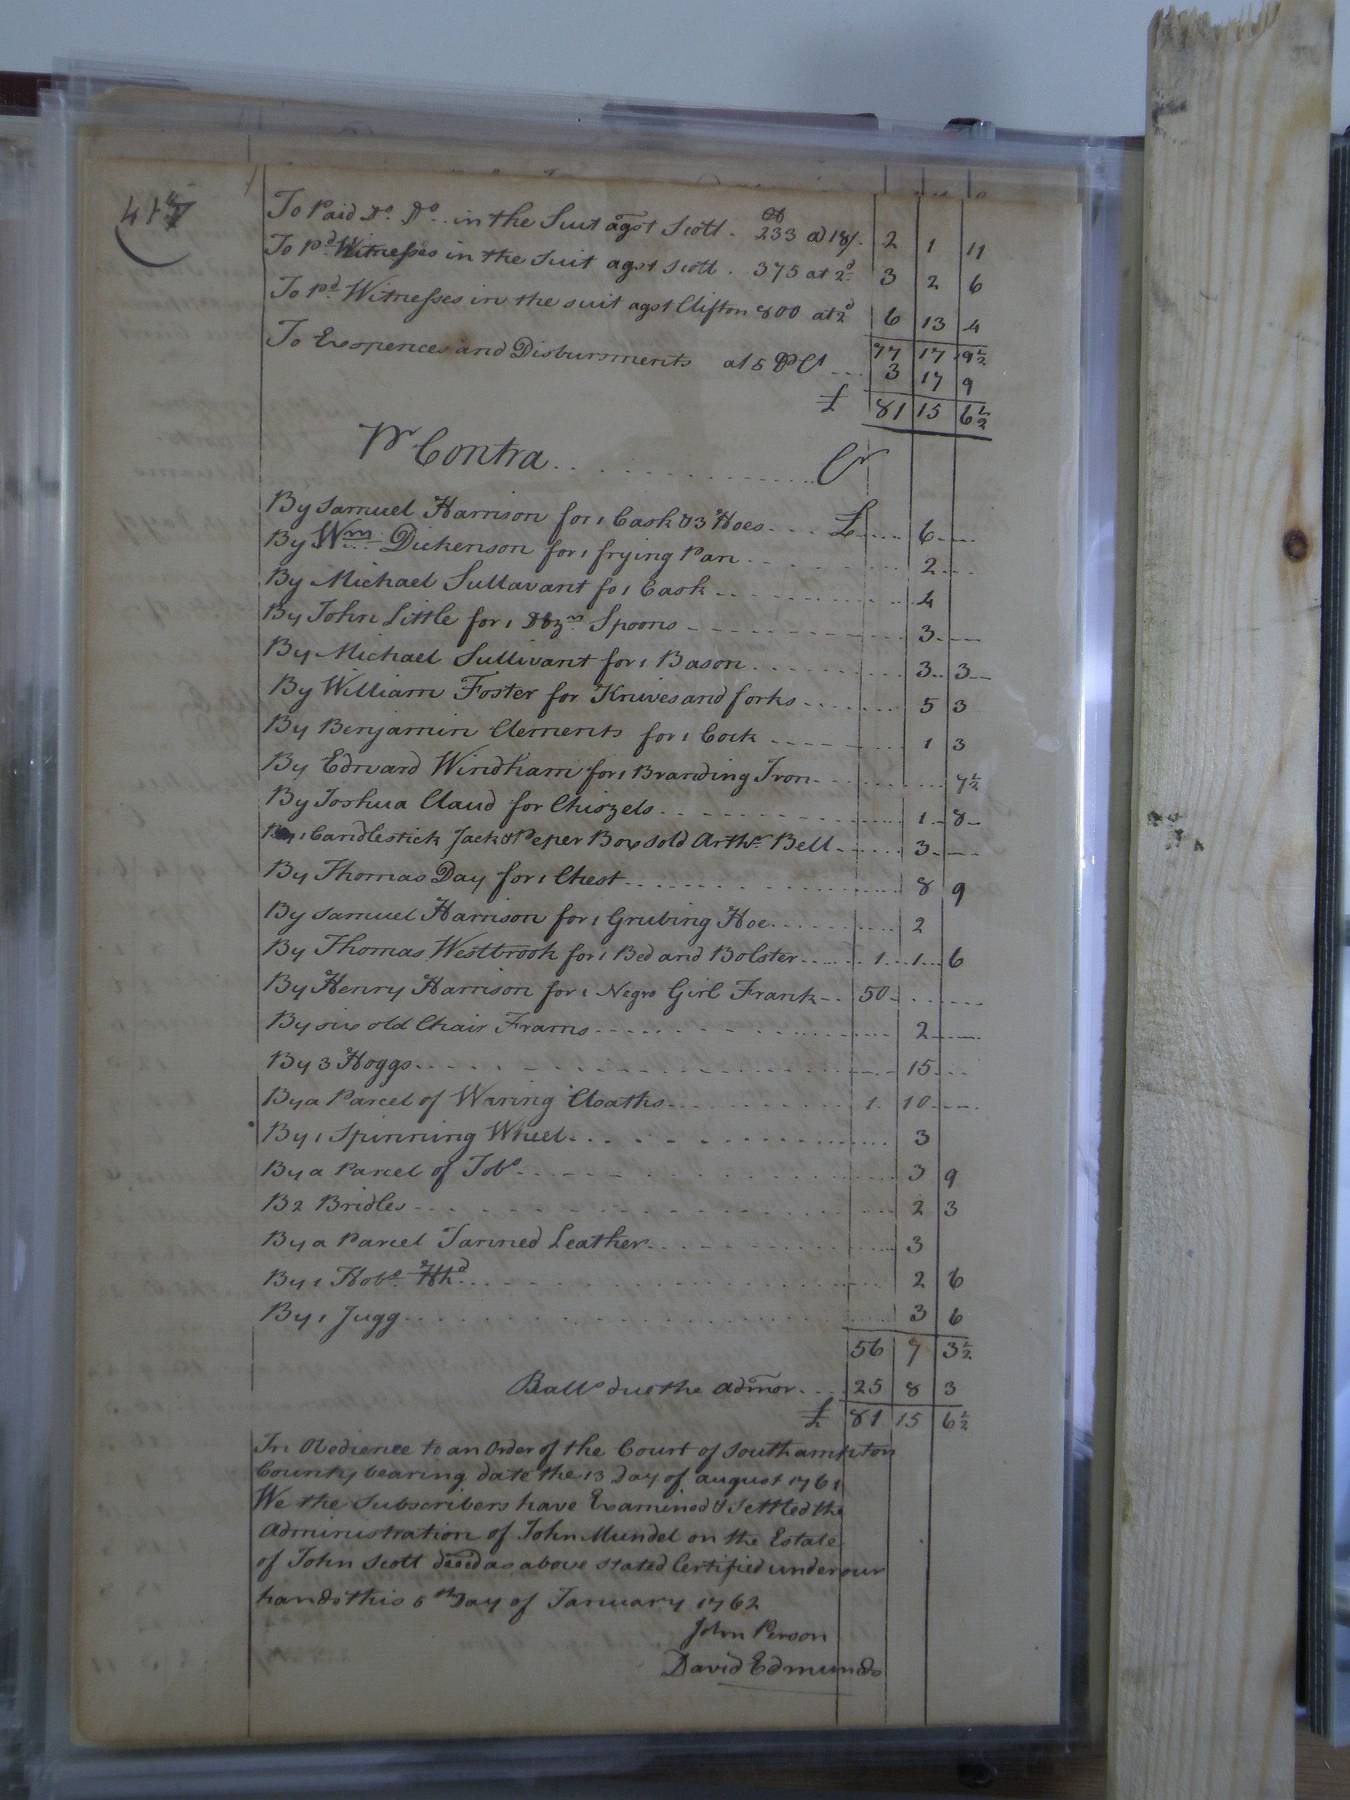 417
To Paid Do. Do. in the Suit agst Scott. 233 a 18/. 2 1 11
To pd. Witnesses in the suit agst Scott. 375 at 2d 3 2 6
To pd. Witnesses in the suit agst Clifton 800 at 2d 6 13 4
77 17 9½
To Expences and Disbursments at 5 P Ct 3 17 9
£ 81 15 6½
Pr Contra Cr
By Samuel Harrison for 1 Cask & 3 Hoes £ 6
By Wm Dickenson for 1 frying Pan 2
By Michael Sullavant fo 1 Cask 4
By John Little for 1 Dozn Spoons 3
By Michael Sullivant for 1 Bason 3 3
By William Foster for Knives and forks 5 3
By Benjamin Clements for 1 Cock 1 3
By Edward Windham for 1 Branding Iron 7½
By Joshua Claud for Chiszels 1 8
By 1 Candlestick Jack & Peper Box sold Arthr. Bell 3
By Thomas Day for 1 Chest 8 9
By Samuel Harrison for 1 Grubing Hoe 2
By Thomas Westbrook for 1 Bed and Bolster 1 1 6
By Henry Harrison for 1 Negro Girl Frank 50
By six old Chair Frams 2
By 3 Hoggs 15
By a Parcel of Waring Cloaths 1 10
By 1 Spinning Wheel 3
By a Parcel of Tobo 3 9
B 2 Bridles 2 3
By a Parcel Tanned Leather 3
By 1 Hhd 2 6
By 1 Jugg 3 6
56 7 3½
Balle due the Admor. 25 8 3
£ 81 15 6½
In Obedience to an Order of the Court of Southampton
County bearing date the 13 Day of august 1761
We the Subscribers have Examined & Settled the
Administration of John Mundel on the Estate
of John Scott deced as above stated Certified under our
hands this 5th Day of January 1762
John Person
David Edmunds